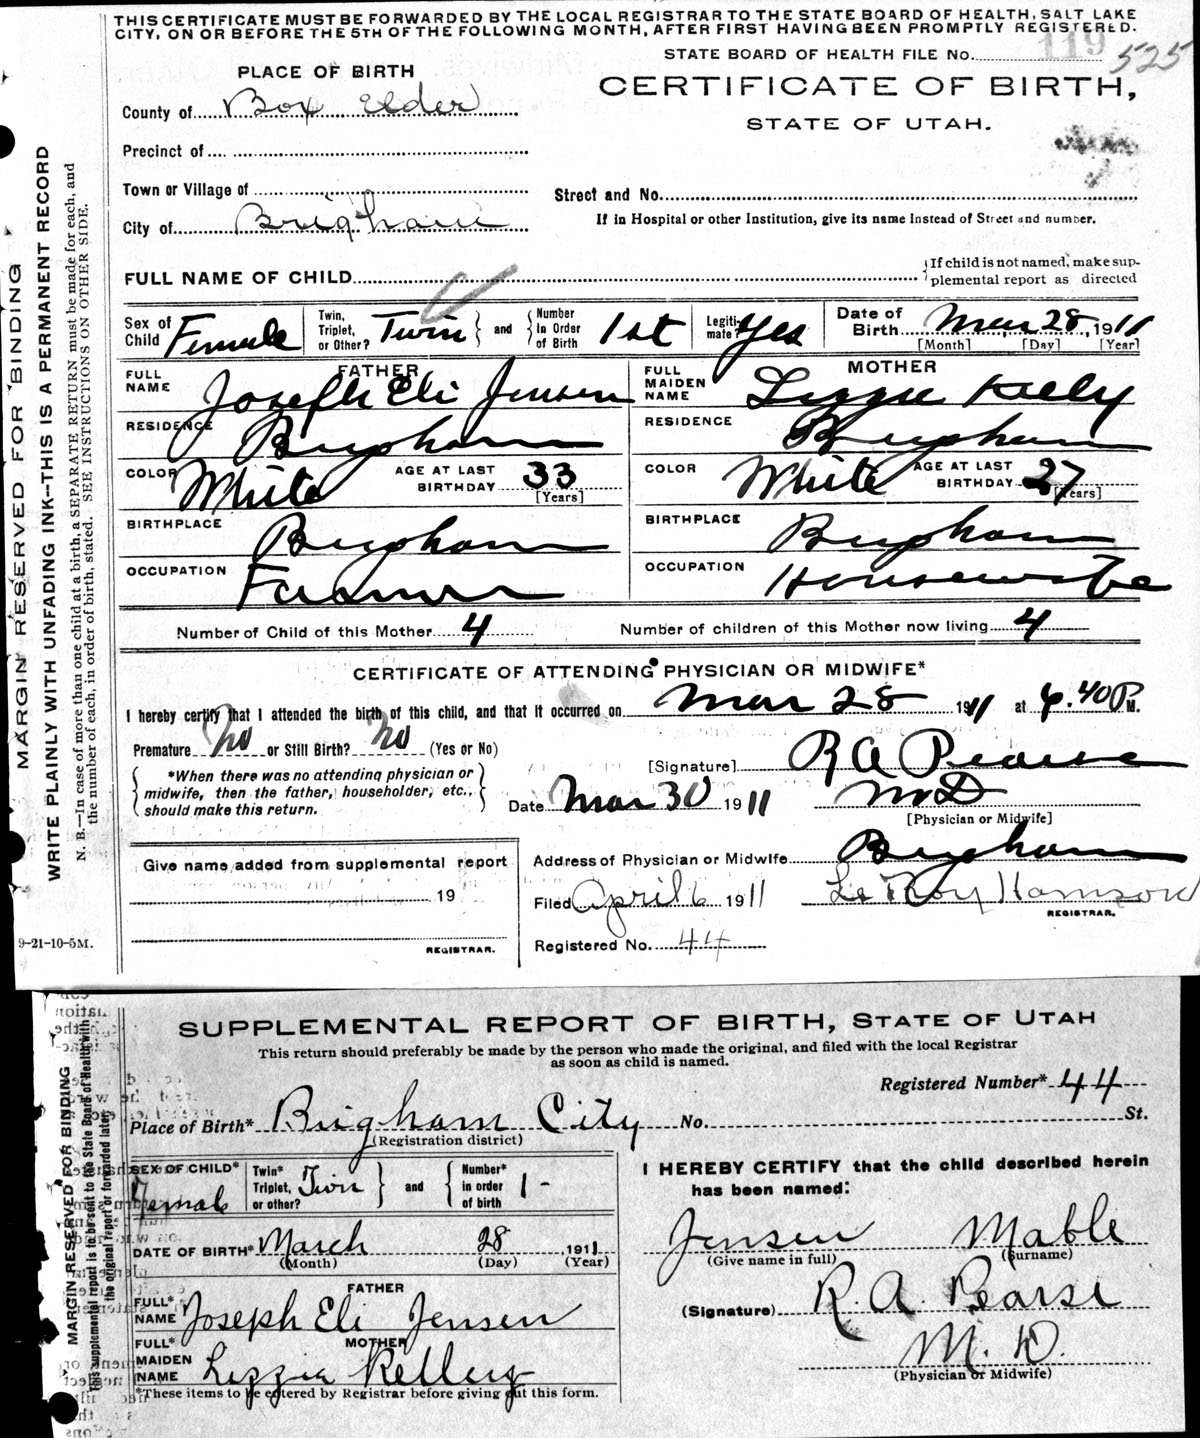 THIS CERTIFICATE MUST BE FORWARDED BY THE LOCAL REGISTRAR TO THE STATE BOARD OF HEALTH, SALT LAKE
CITY, ON OR BEFORE THE 5TH OF THE FOLLOWING MONTH, AFTER FIRST HAVING BEEN PROMPTLY REGISTERED.
STATE BOARD OF HEALTH FILE No. 119 525
PLACE OF BIRTH
CERTIFICATE OF BIRTH,
STATE OF UTAH.
County of Box Elder
Precinct of
Town or Village of
Street and No.
City of Brigham
If in Hospital or other Institution, give its name Instead of Street and number.
FULL NAME OF CHILD
If child is not named, make sup-
plemental report as directed
Sex of Child Female
Twin, Triplet, or Other? Twin and Number In Order of Birth 1st
Legiti-mate? Yes
Date of Birth Mar 28, 1911
[Month] [Day] [Year]
FATHER
FULL NAME Joseph Eli Jensen
MOTHER
FULL MAIDEN NAME Lizzie Kelly
RESIDENCE Brigham
RESIDENCE Brigham
COLOR White AGE AT LAST BIRTHDAY 33 [Years]
COLOR White AGE AT LAST BIRTHDAY 27 [Years]
BIRTHPLACE Brigham
BIRTHPLACE Brigham
OCCUPATION Farmer
OCCUPATION Housewife
Number of Child of this Mother 4
Number of children of this Mother now living 4
CERTIFICATE OF ATTENDING PHYSICIAN OR MIDWIFE*
I hereby certify that I attended the birth of this child, and that it occurred on Mar 28 1911 at 6.40 P. M.
Premature No or Still Birth? No (Yes or No)
*When there was no attending physician or
midwife, then the father, householder, etc.,
should make this return.
[Signature] R A Pearse
M D
[Physician or Midwife]
Date Mar 30 1911
Give name added from supplemental report
19
REGISTRAR.
Address of Physician or Midwife Brigham
Filed April 6 1911 Le Roy Harrison
REGISTRAR.
Registered No. 44
MARGIN RESERVED FOR BINDING
WRITE PLAINLY WITH UNFADING INK—THIS IS A PERMANENT RECORD
N. B.—In case of more than one child at a birth, a SEPARATE RETURN must be made for each, and
the number of each, in order of birth, stated. SEE INSTRUCTIONS ON OTHER SIDE.
9-21-10-5M.
SUPPLEMENTAL REPORT OF BIRTH, STATE OF UTAH
This return should preferably be made by the person who made the original, and filed with the local Registrar
as soon as child is named.
Registered Number* 44
Place of Birth* Brigham City No. St.
(Registration district)
SEX OF CHILD* Female
Twin* Triplet, or other? Twin and Number* in order of birth 1 -
DATE OF BIRTH* March 28 1911
(Month) (Day) (Year)
FATHER
FULL* NAME Joseph Eli Jensen
MOTHER
FULL* MAIDEN NAME Lizzie Kelley
*These items to be entered by Registrar before giving out this form.
I HEREBY CERTIFY that the child described herein
has been named:
Jensen Mable
(Give name in full) (Surname)
(Signature) R. A. Pearse
M. D.
(Physician or Midwife)
MARGIN RESERVED FOR BINDING
This supplemental report is to be sent to the State Board of Health with
the original report or forwarded later.